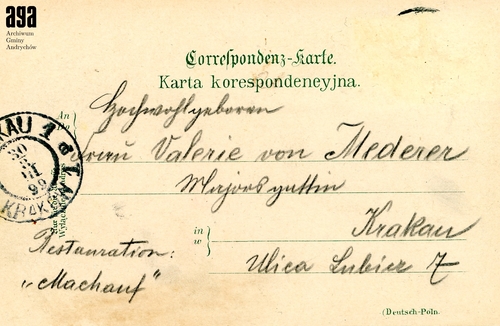 aga
Archiwum
Gminy
Andrychów
Correspondenz-Karte.
Karta korespondencyjna.
An
Hochwohlgeboren
Frau Valerie von Mederer
Majorsgattin
in
w
Krakau
Ulica Lubicz 7
Restauration:
"Machauf"
KRAKAU 1
99
KRAK
(Deutsch-Poln.